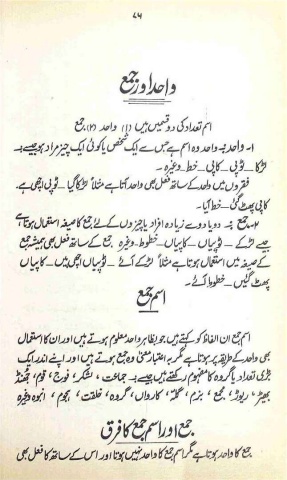 ۷۶
واحد اور جمع
اسم تعداد کی دو قسمیں ہیں (۱) واحد (۲) جمع
۱۔ واحد :۔ واحد وہ اسم ہے جس سے ایک شخص یا کوئی ایک چیز مراد ہو جیسے۔
لڑکا۔ ٹوپی۔ کاپی۔ خط۔ وغیرہ۔
فقروں میں واحد کے ساتھ فعل بھی واحد آتا ہے مثلاً لڑکا گیا۔ ٹوپی اچھی ہے۔
کاپی پھٹ گئی۔ خط آیا۔
۲۔ جمع :۔ دو یا دو سے زیادہ افراد یا چیزوں کے لئے جمع کا صیغہ استعمال ہوتا ہے
جیسے لڑکے۔ ٹوپیاں۔ کاپیاں۔ خطوط۔ وغیرہ جمع کے ساتھ فعل بھی ہمیشہ جمع
کے صیغہ میں استعمال ہوتا ہے مثلاً لڑکے آئے۔ ٹوپیاں اچھی ہیں۔ کاپیاں
پھٹ گئیں۔ خطوط آئے۔
اسم جمع
اسم جمع ان الفاظ کو کہتے ہیں جو بظاہر واحد معلوم ہوتے ہیں اور ان کا استعمال
بھی واحد کے طریقہ پر ہوتا ہے مگر بہ اعتبار معنی وہ جمع ہوتے ہیں اور اپنے اندر ایک
بڑی تعداد یا گروہ کا مفہوم رکھتے ہیں جیسے :۔ جماعت، لشکر، فوج، قوم، جھنڈ
بھیڑ، ریوڑ، مجمع، بزم، گلہ، کارواں، گروہ، خلقت، ہجوم، انبوہ وغیرہ
جمع اور اسم جمع کا فرق
جمع کا واحد ہوتا ہے مگر اسم جمع کا واحد نہیں ہوتا اور اس کے ساتھ کا فعل بھی